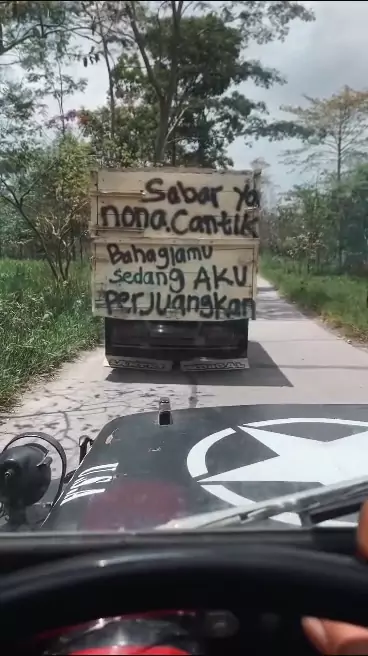 Sabar ya
nona.Cantik
Bahagiamu
Sedang AKU
PerJuangkan